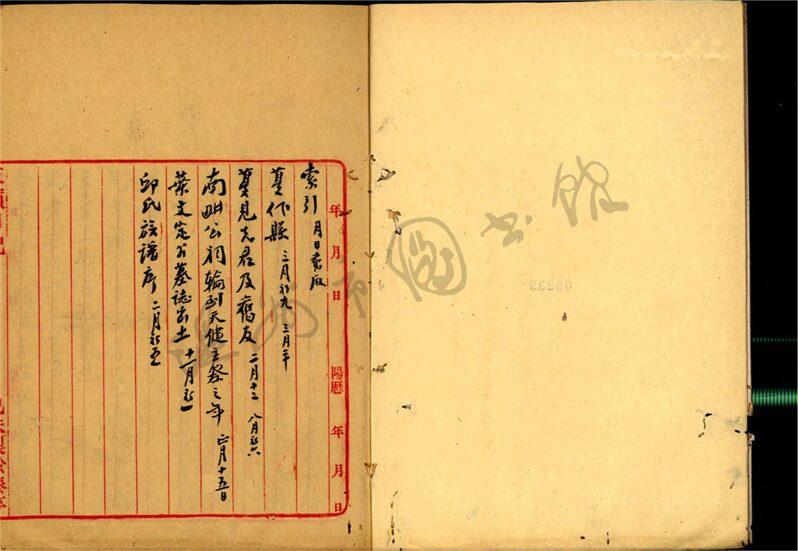 年 月 日 陽曆 年 月 日
索引 月日舊歷
夢作縣 三月初九 三月二十
夢見先君及舊友 二月十二 八月初六
南畊公祠輪到天健主祭之年 正月十五日
葉文定公墓誌出土 十一月初一
邱氏族譜序 二月初五
圖書館
00233